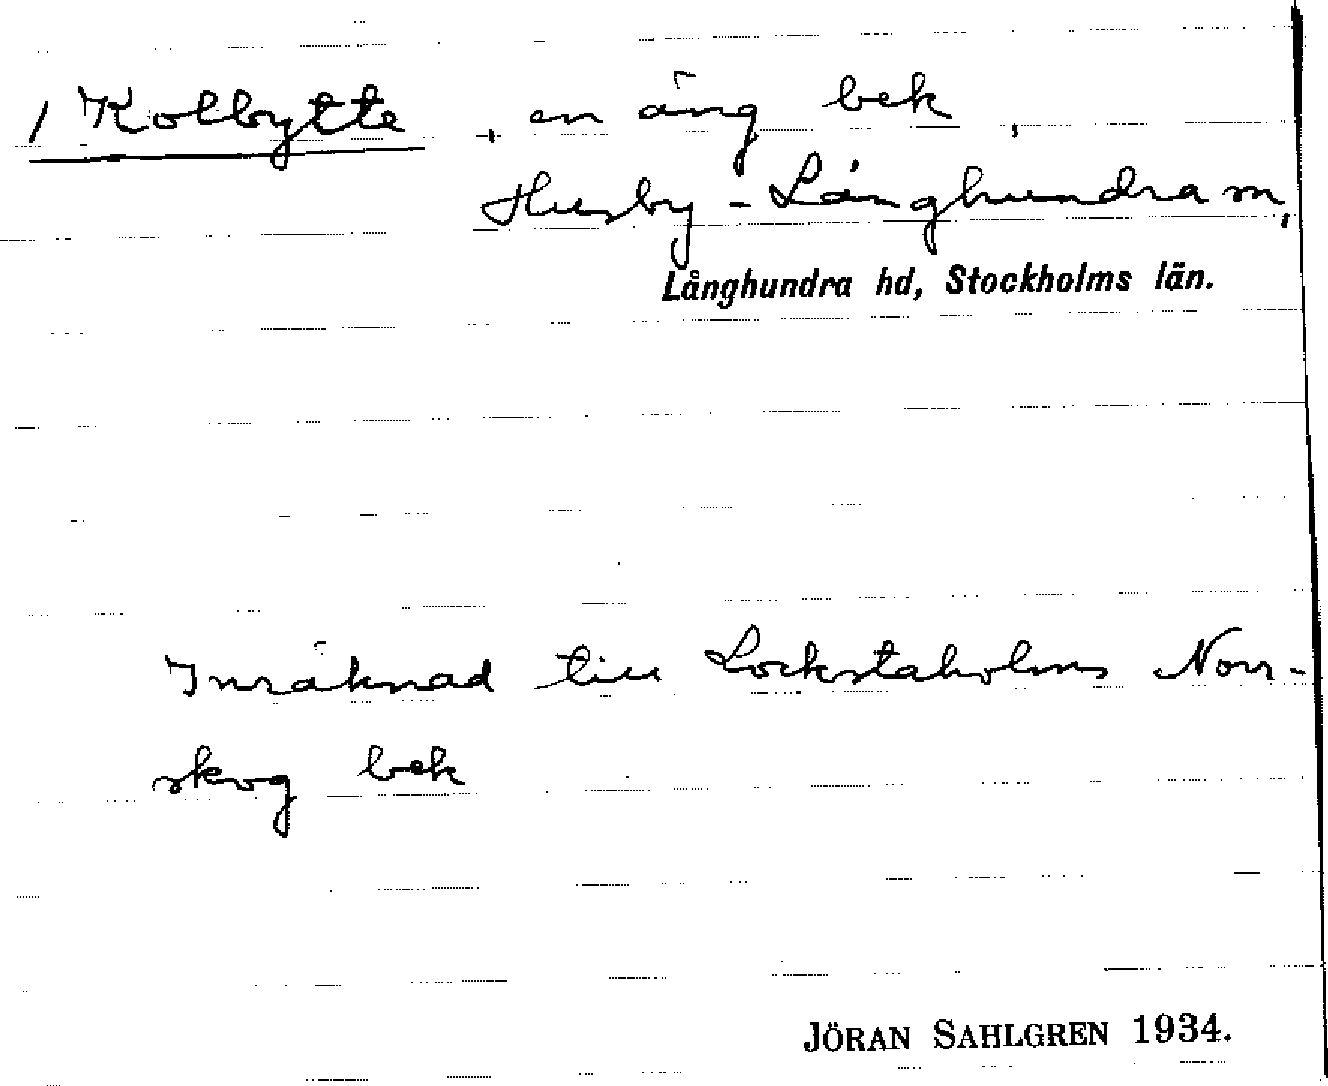 / Kolbytte, en äng bek,
Husby-Långhundra sn,
Långhundra hd, Stockholms län.
Inräknad till Lockstaholms Norr-
skog bek
JÖRAN SAHLGREN 1934.